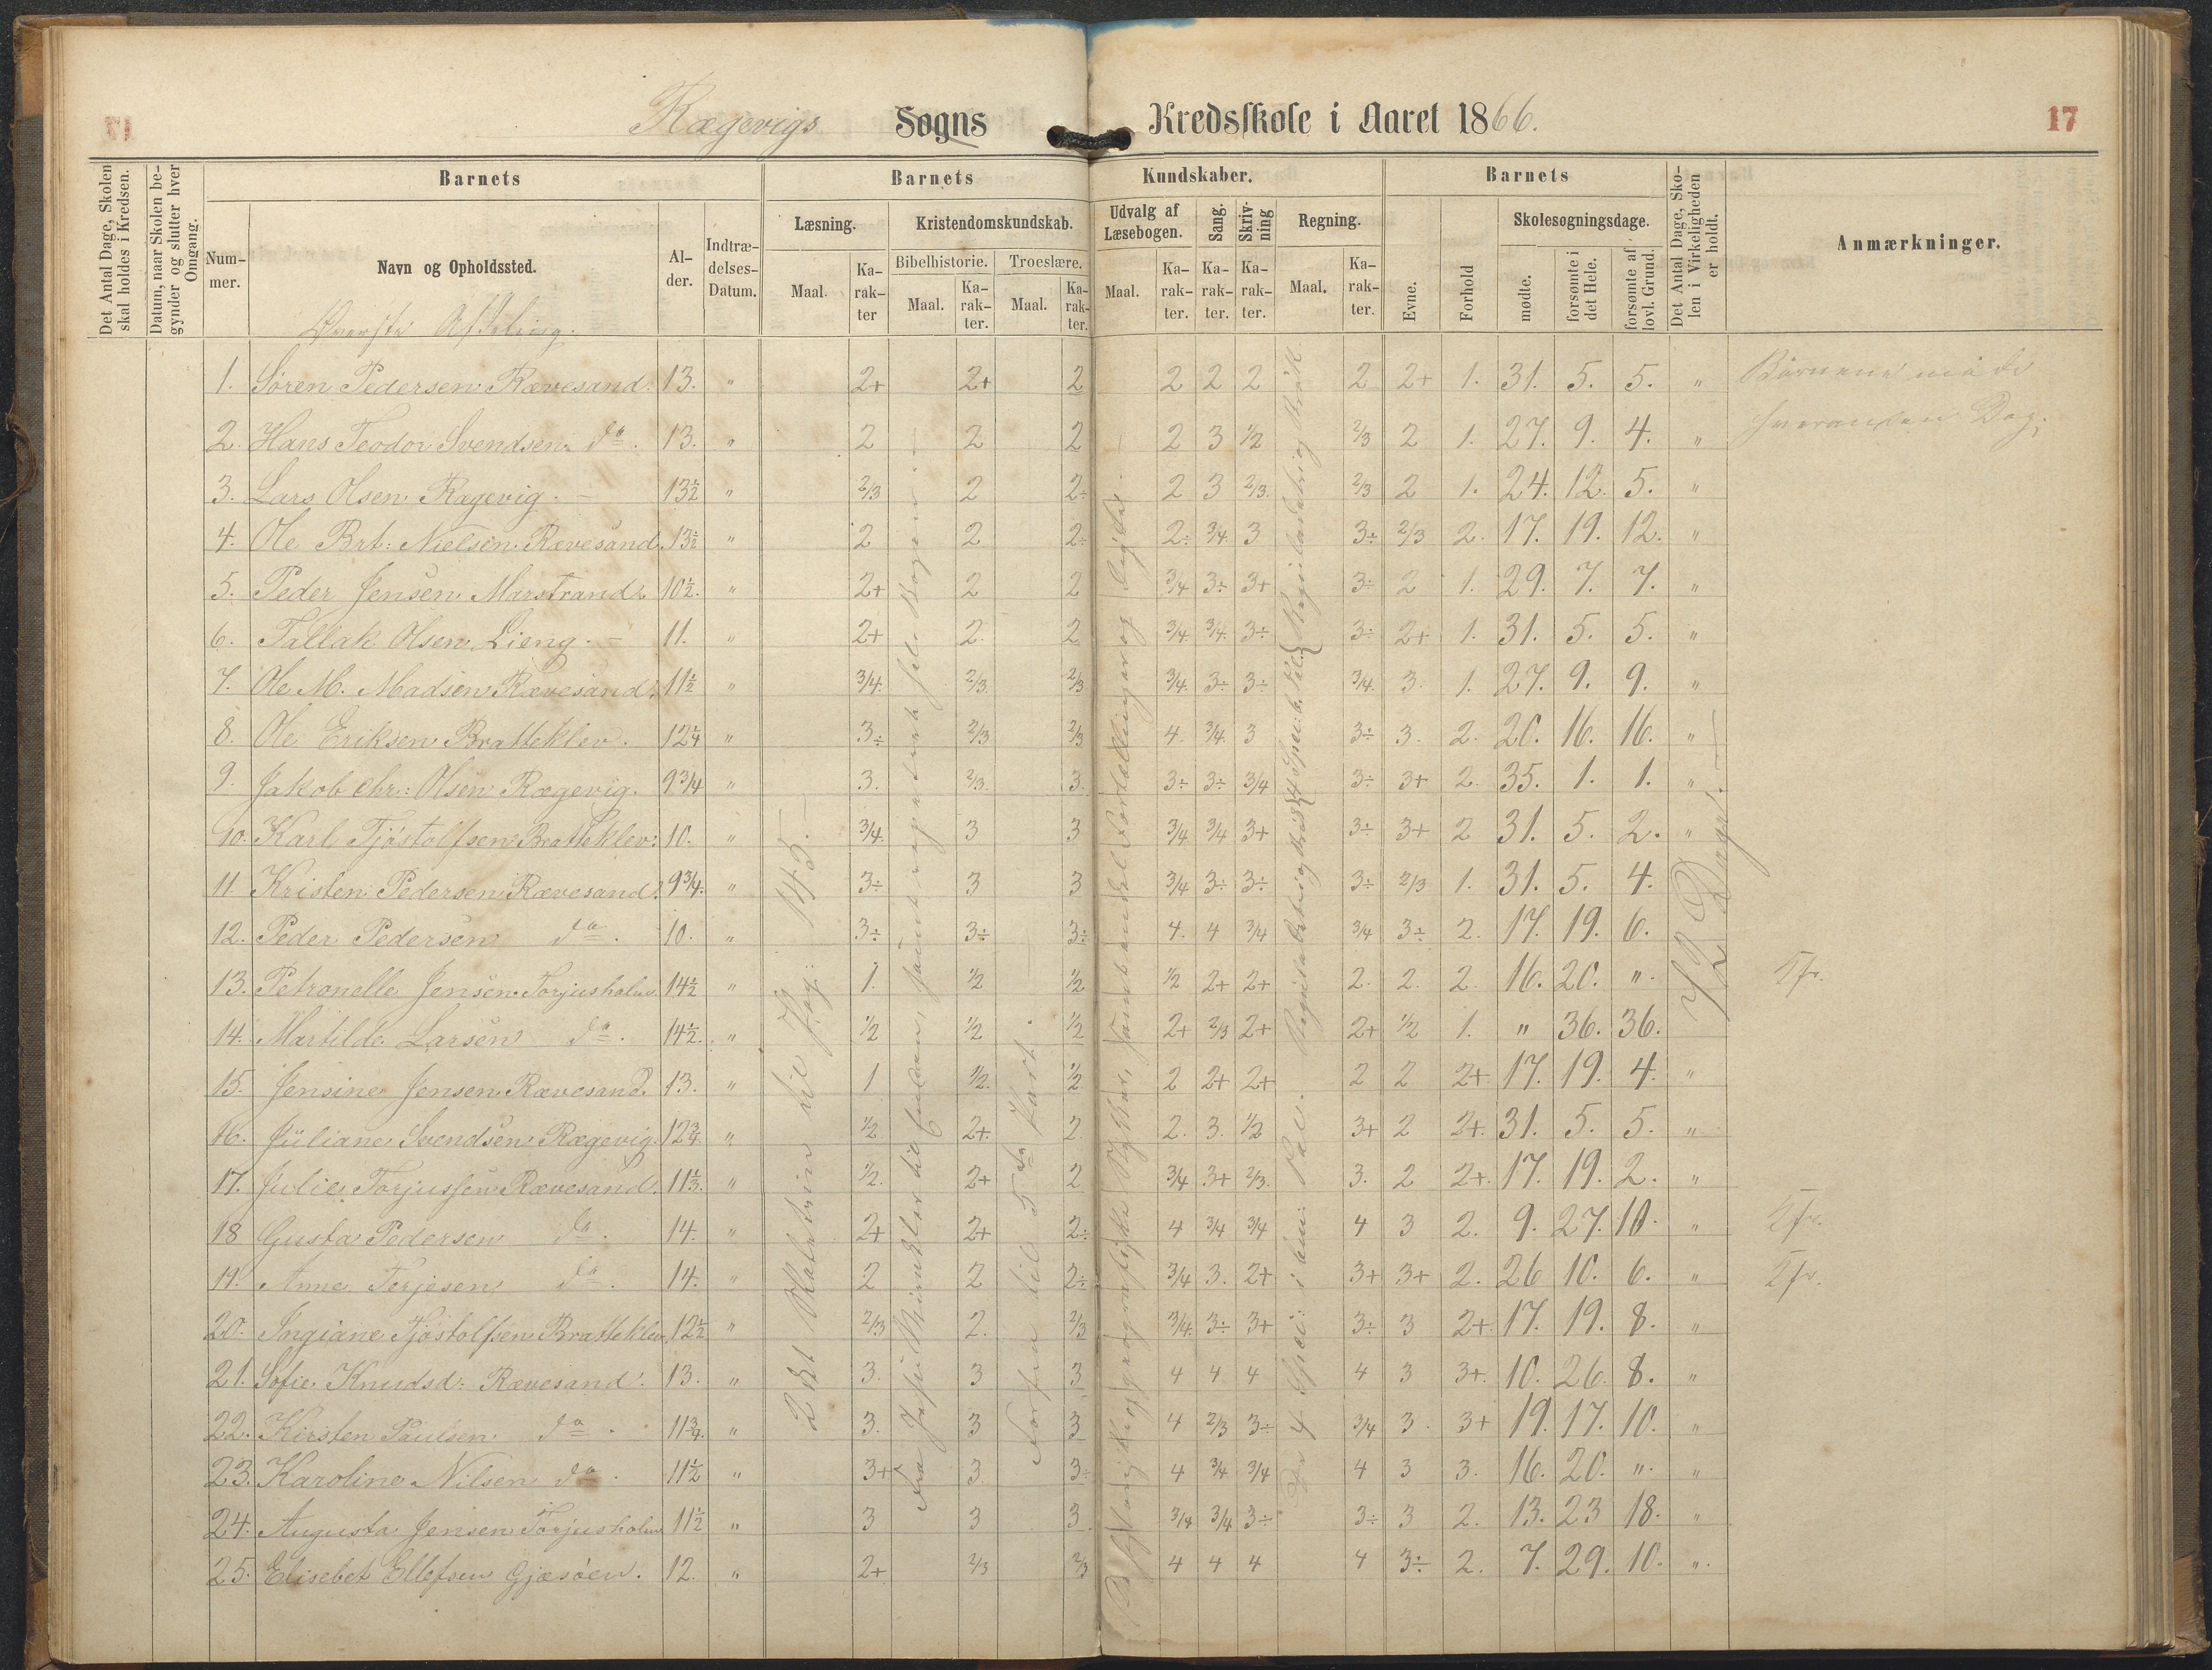 Rægevigs Sogns Kredsskole i Aaret 1866.
17
Det Antal Dage, Skolen skal holdes i Kredsen.
Datum, naar Skolen begynder og slutter hver Omgang.
Barnets
Barnets Kundskaber.
Barnets
Det Antal Dage, Skolen i Virkeligheden er holdt.
Anmærkninger.
Nummer.
Navn og Opholdssted.
Alder.
Indtrædelses-Datum.
Læsning.
Kristendomskundskab.
Udvalg af Læsebogen.
Sang.
Skrivning
Regning.
Evne.
Forhold
Skolesøgningsdage.
Bibelhistorie.
Troeslære.
Maal.
Karakter
Maal.
Karakter.
Maal.
Karakter.
Maal.
Karakter.
Karakter.
Karakter.
Maal.
Karakter.
mødte.
forsømte i det Hele.
forsømte af lovl. Grund.
Øverste Afdeling.
1. Søren Pedersen Rævesand. 13. " 2+ 2+ 2 2 2 2 2 2+ 1. 31. 5. 5. "
2. Hans Teodor Svendsen do. 13. " 2 2 2 2 3 1/2 2/3 2 1. 27. 9. 4. "
3. Lars Olsen Rægevig. 13½ " 2/3 2 2÷ 2 3 2/3. 2/3 2 1. 24. 12. 5. "
4. Ole Brt: Nielsen Rævesand 13½ " 2 2 2÷ 2÷ 3/4. 3 3÷ 2/3 2. 17. 19. 12. "
5. Peder Jensen Marstrand. 10½. " 2+ 2 2 3/4 3÷ 3+ 3÷ 2 1. 29. 7. 7. "
6. Tallak Olsen Lieng. 11. " 2+ 2. 2 3/4 3/4. 3÷ 3÷ 2+ 1. 31. 5. 5. "
7. Ole M. Madsen Rævesand. 11½ " 3/4. 2/3. 2/3 3/4. 3÷ 3÷ 3/4. 3. 1. 27. 9. 9. "
8. Ole Eriksen Bratteklev. 12¼ " 3÷ 2/3 2/3 4. 3/4. 3 3÷ 3. 2. 20. 16. 16. "
9. Jakob Chr: Olsen Rægevig. 9¾ " 3. 2/3. 3. 3÷ 3÷ 3/4 3÷ 3+ 2. 35. 1. 1. "
10. Karl Tjøstolfsen Bratteklev: 10. " 3/4. 3 3 3/4 3/4 3+ 3÷ 3+ 2 31. 5. 2. "
11 Kristen Pedersen Rævesand. 9¾. " 3÷ 3 3 3/4 3÷ 3÷ 3÷ 2/3 1. 31. 5. 4.
12. Peder Pedersen do. 10. " 3÷ 3÷ 3÷ 4. 4 3/4 3/4 3÷ 2. 17. 19. 6.
13. Petronelle Jensen Torjusholm. 14½ " 1. 1/2 1/2 1/2 2+ 2+ 2. 2. 2. 16. 20. "
14. Martilde Larsen do. 14½. " 1/2 1/2 1/2 2+ 2/3 2+ 2+ 1/2 1. " 36. 36.
15. Jensine Jensen Rævesand. 13. " 1 1/2. 1/2 2 2+ 2+ 2 2 2+ 17. 19. 4. "
16. Juliane Svendsen Rægevig. 12¾. " 1/2. 2+. 2 2. 3. 1/2 3+ 2 2+. 31. 5. 5. "
17. Julie Torjussen Rævesand. 11⅓. " 1/2. 2+ 2 3/4 3+ 2/3. 3. 2 2+. 17. 19. 2. "
18 Gusta Pedersen do. 14. " 2+ 2+ 2÷ 4 3/4 3/4 4 3 2. 9. 27. 10. "
19. Anne Terjesen do. 14. " 2 2 2÷ 3/4 3. 2+ 3+ 3+ 2. 26 10. 6. "
20. Ingiane Tjøstolfsen Bratteklev. 12½ " 2/3 2. 2/3 3/4. 3÷ 3+ 3÷ 3 2+. 17. 19. 8. "
21. Sofie Knudsd: Rævesand. 13. " 3. 3 3 4 4 4 4 3 3+. 10. 26. 8. "
22. Kirsten Paulsen do. 11¾. " 3. 3 3 4 2/3 3÷ 3/4 3. 3+ 19. 17. 10. "
23. Karoline Nilsen do. 11½ " 3+ 3. 3÷ 4 3/4 3/4 4 3 3. 16. 20. " "
24. Augusta Jensen Torjusholm 11½ " 3 3 3. 3/4 3/4 3÷ 3÷ 3 2. 13. 23 18. "
25. Elisebet Ellefsen Gjæsøen. 12. " 2+ 2/3 2/3 4 4 4 4 3÷ 2. 7. 29. 10. "
Børnene mødte
hverandren Dag.
72 Dage.